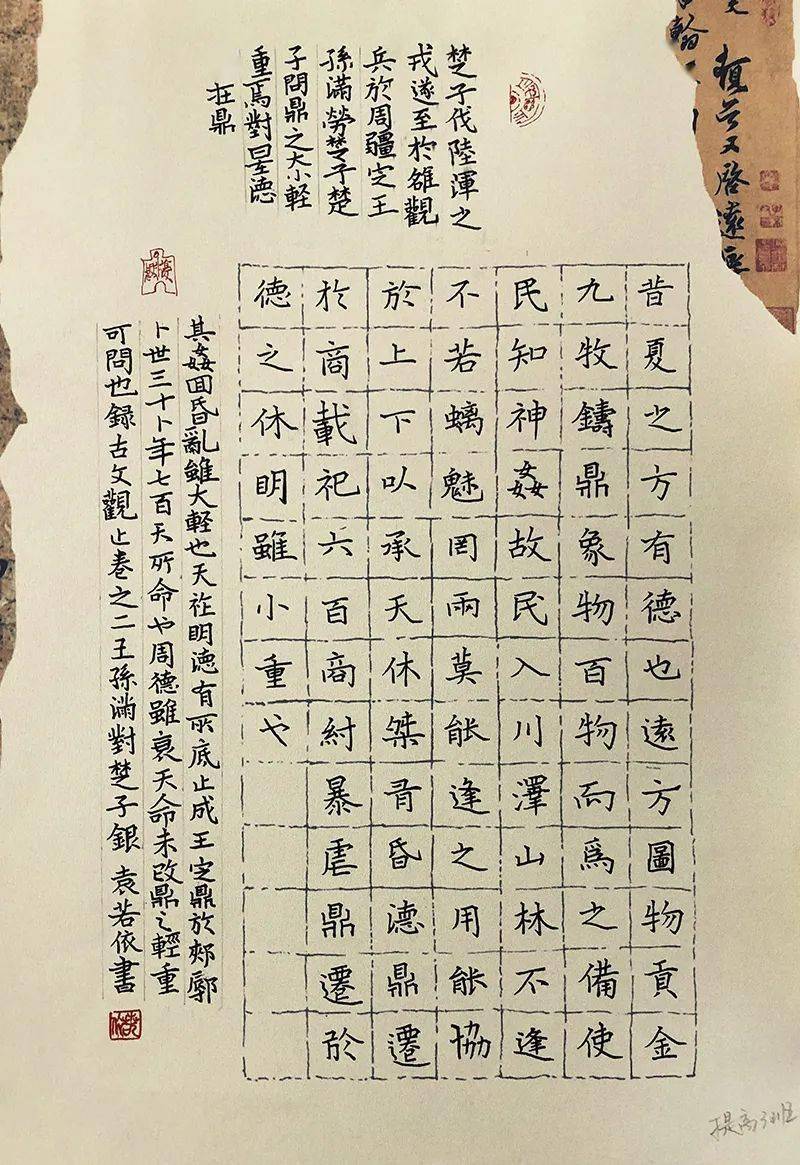 楚子伐陸渾之
戎遂至於雒觀
兵於周疆定王
孫滿勞楚子楚
子問鼎之大小軽
重焉對曰德
在鼎
昔夏之方有德也遠方圖物貢金
九牧鑄鼎象物百物而爲之備使
民知神姦故民入川澤山林不逢
不若螭魅罔兩莫能逢之用能協
於上下以承天休桀有昏德鼎遷
於商載祀六百商紂暴虐鼎遷於
德之休明雖小重也
其姦回昏亂雖大軽也天祚明德有所底止成王定鼎於郟鄏
卜世三十卜年七百天所命也周德雖衰天命未改鼎之輕重
可問也録古文觀止卷之二王孫滿對楚子銀 袁若依書
提高3班